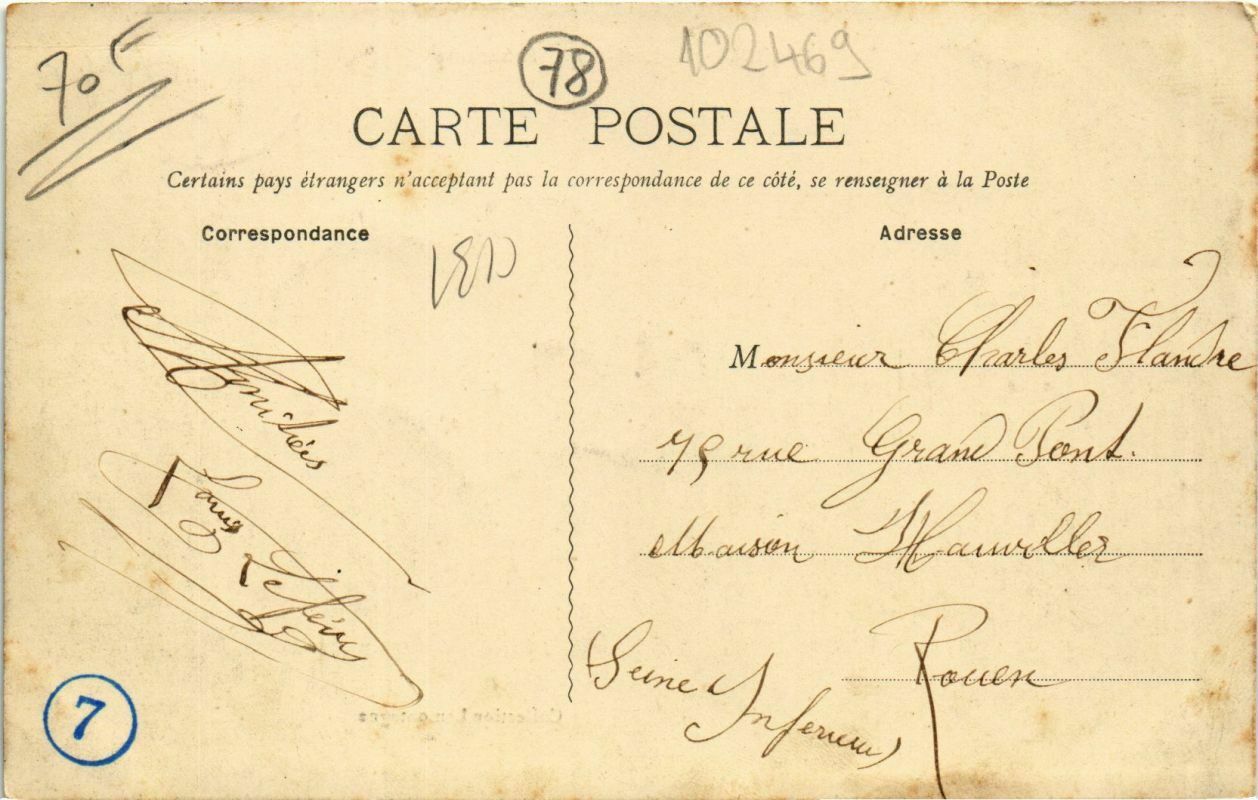 70F
78
102469
CARTE POSTALE
Certains pays étrangers n'acceptant pas la correspondance de ce côté, se renseigner à la Poste
Correspondance
Adresse
Amitiés
Monsieur Charles Flandre
75 rue Grand Pont.
Maison
Rouen
Seine Inferieure
7